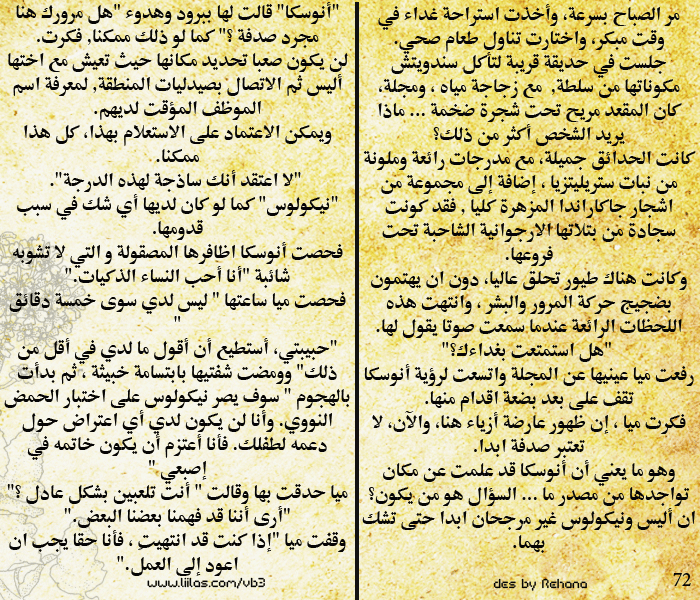 مر الصباح بسرعة، وأخذت استراحة غداء في
وقت مبكر، واختارت تناول طعام صحي.
جلست في حديقة قريبة لتأكل سندويتش
مكوناتها من سلطة, مع زجاجة مياه ، ومجلة،
كان المقعد مريح تحت شجرة ضخمة ... ماذا
يريد الشخص أكثر من ذلك؟
كانت الحدائق جميلة، مع مدرجات رائعة وملونة
من نبات ستريليتزيا ، إضافة إلى مجموعة من
اشجار جاكاراندا المزهرة كليا , فقد كونت
سجادة من بتلاتها الارجوانية الشاحبة تحت
فروعها.
وكانت هناك طيور تحلق عاليا، دون ان يهتمون
بضجيج حركة المرور والبشر ، وانتهت هذه
اللحظات الرائعة عندما سمعت صوتا يقول لها.
"هل استمتعت بغداءك؟"
رفعت ميا عينيها عن المجلة واتسعت لرؤية أنوسكا
تقف على بعد بضعة اقدام منها.
فكرت ميا ، إن ظهور عارضة أزياء هنا، والآن، لا
تعتبر صدفة ابدا.
وهو ما يعني أن أنوسكا قد علمت عن مكان
تواجدها من مصدر ما ... السؤال هو من يكون؟
ان أليس ونيكولوس غير مرجحان ابدا حتى تشك
بهما.
72
des by Rehana
"أنوسكا" قالت لها ببرود وهدوء "هل مرورك هنا
مجرد صدفة ؟" كما لو ذلك ممكنا, فكرت.
لن يكون صعبا تحديد مكانها حيث تعيش مع اختها
أليس ثم الاتصال بصيدليات المنطقة, لمعرفة اسم
الموظف المؤقت لديهم.
ويمكن الاعتماد على الاستعلام بهذا، كل هذا
ممكنا.
"لا اعتقد أنك ساذجة لهذه الدرجة".
"نيكولوس" كما لو كان لديها أي شك في سبب
قدومها.
فحصت أنوسكا اظافرها المصقولة و التي لا تشوبه
شائبة "أنا أحب النساء الذكيات."
فحصت ميا ساعتها " ليس لدي سوى خمسة دقائق
"
"حبيبتي، أستطيع أن أقول ما لدي في أقل من
ذلك" وومضت شفتيها بابتسامة خبيثة ، ثم بدأت
بالهجوم " سوف يصر نيكولوس على اختبار الحمض
النووي. وأنا لن يكون لدي أي اعتراض حول
دعمه لطفلك. فأنا أعتزم أن يكون خاتمه في
إصبعي "
ميا حدقت بها وقالت " أنت تلعبين بشكل عادل ؟"
"أرى أننا قد فهمنا بعضنا البعض."
وقفت ميا "إذا كنت قد انتهيت ، فأنا حقا يجب ان
اعود إلى العمل."
www.liilas.com/vb3